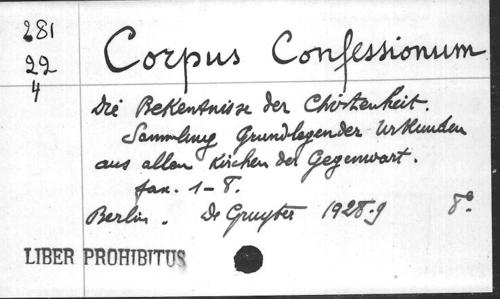 281
22
4
Corpus Confessionum
Die Bekentnisse der Christenheit.
Sammlung Grundlegender Urkunden
aus allen Kirchen der Gegenwart.
fax. 1-8.
Berlin. De Gruyter 1928-9 8°
LIBER PROHIBITUS